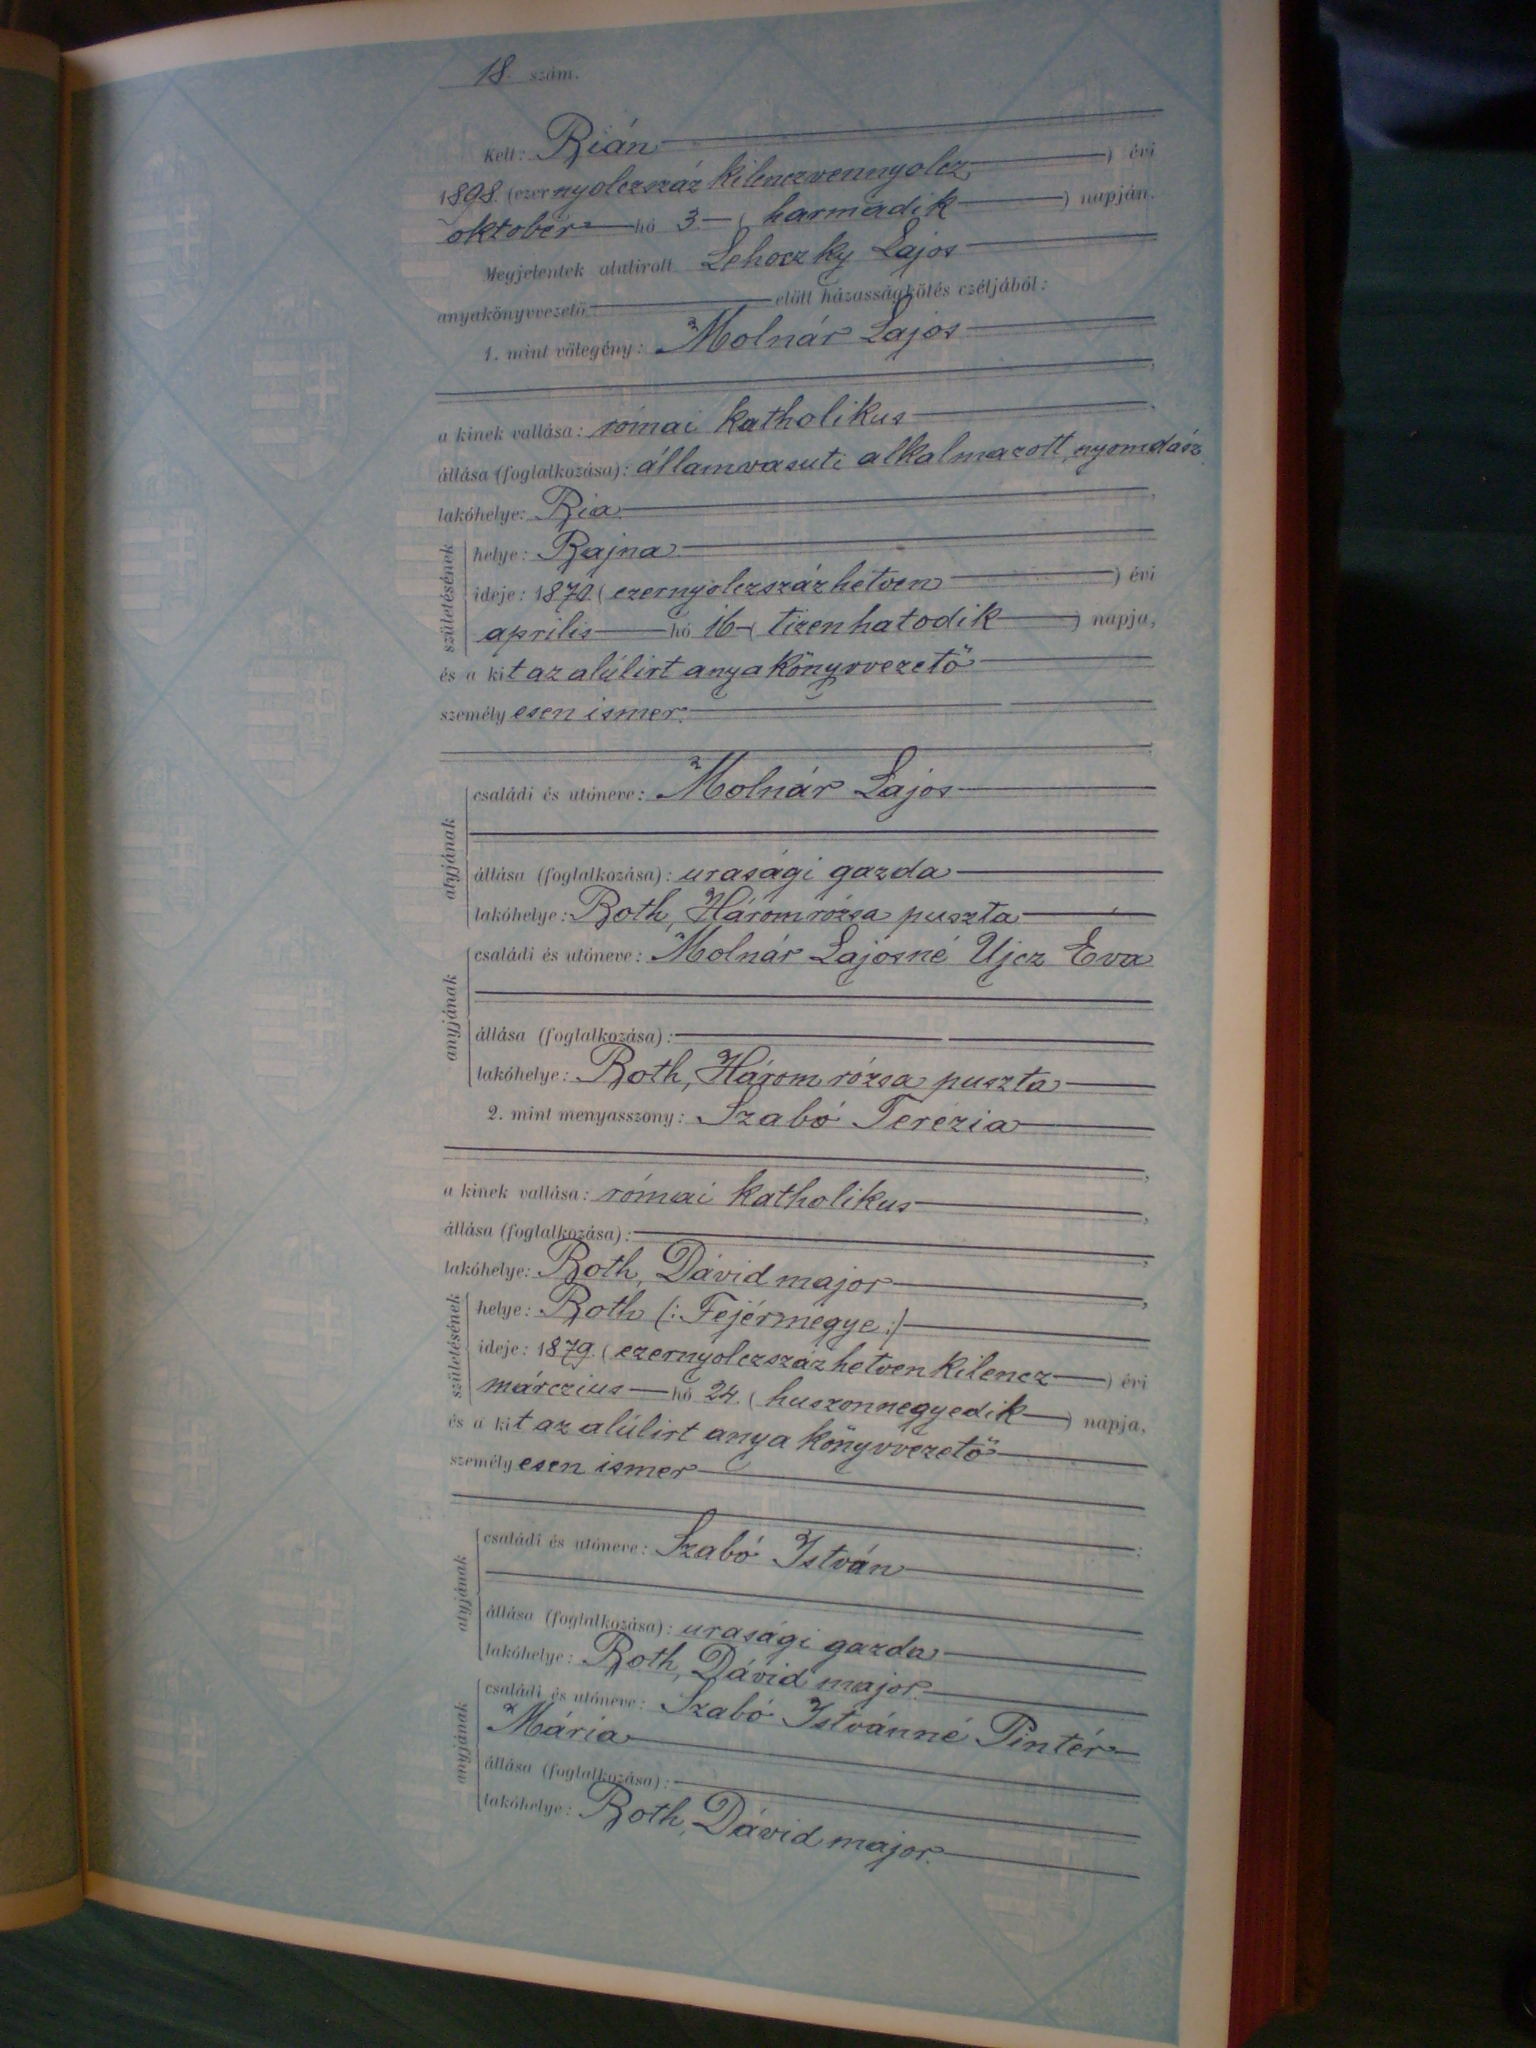 18. szám.
Kelt: Rián
1898. (ezernyolczszáz kilenczvennyolcz) évi
október hó 3 (harmadik) napján.
Megjelentek alulirott Lehoczky Lajos
anyakönyvvezető előtt házasságkötés czéljából:
1. mint vőlegény: Molnár Lajos
a kinek vallása: római katholikus
állása (foglalkozása): államvasuti alkalmazott, nyomdász
lakóhelye: Ria
születésének
helye: Rajna
ideje: 1870. (ezernyolczszázhetven) évi
április hó 16 (tizenhatodik) napja,
és a kit az alúlirt anyakönyvvezető
személyesen ismer.
atyjának
családi és utóneve: Molnár Lajos
állása (foglalkozása): urasági gazda
lakóhelye: Roth, Háromrózsa puszta
anyjának
családi és utóneve: Molnár Lajosné Ujcz Éva
állása (foglalkozása):
lakóhelye: Roth, Háromrózsa puszta
2. mint menyasszony: Szabó Terézia
a kinek vallása: római katholikus
állása (foglalkozása):
lakóhelye: Roth, Dávid major
születésének
helye: Roth (: Fejérmegye :)
ideje: 1879. (ezernyolczszázhetvenkilencz) évi
márczius hó 24. (huszonnegyedik) napja,
és a kit az alúlirt anyakönyvvezető
személyesen ismer
atyjának
családi és utóneve: Szabó István
állása (foglalkozása): urasági gazda
lakóhelye: Roth, Dávid major.
anyjának
családi és utóneve: Szabó Istvánné Pintér
Mária
állása (foglalkozása):
lakóhelye: Roth, Dávid major.